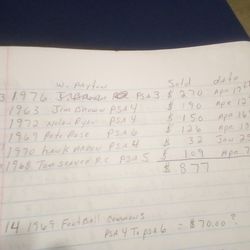 W. Payton Sold date
3 1976 PSA 3 $ 270 Apr
1963 Jim Brown PSA 4 $ 190 Apr 12
1972 Nolan Ryan PSA 4 $ 150 Apr 16
1969 Pete Rose PSA 6 $ 126 Apr
1970 Hank Aaron PSA 4 $ 32 Jan
1968 Tom Seaver R.C. PSA 5 $ 109 Apr
$ 877
14 1969 Football commons
PSA 4 to PSA 6 = $70.00?